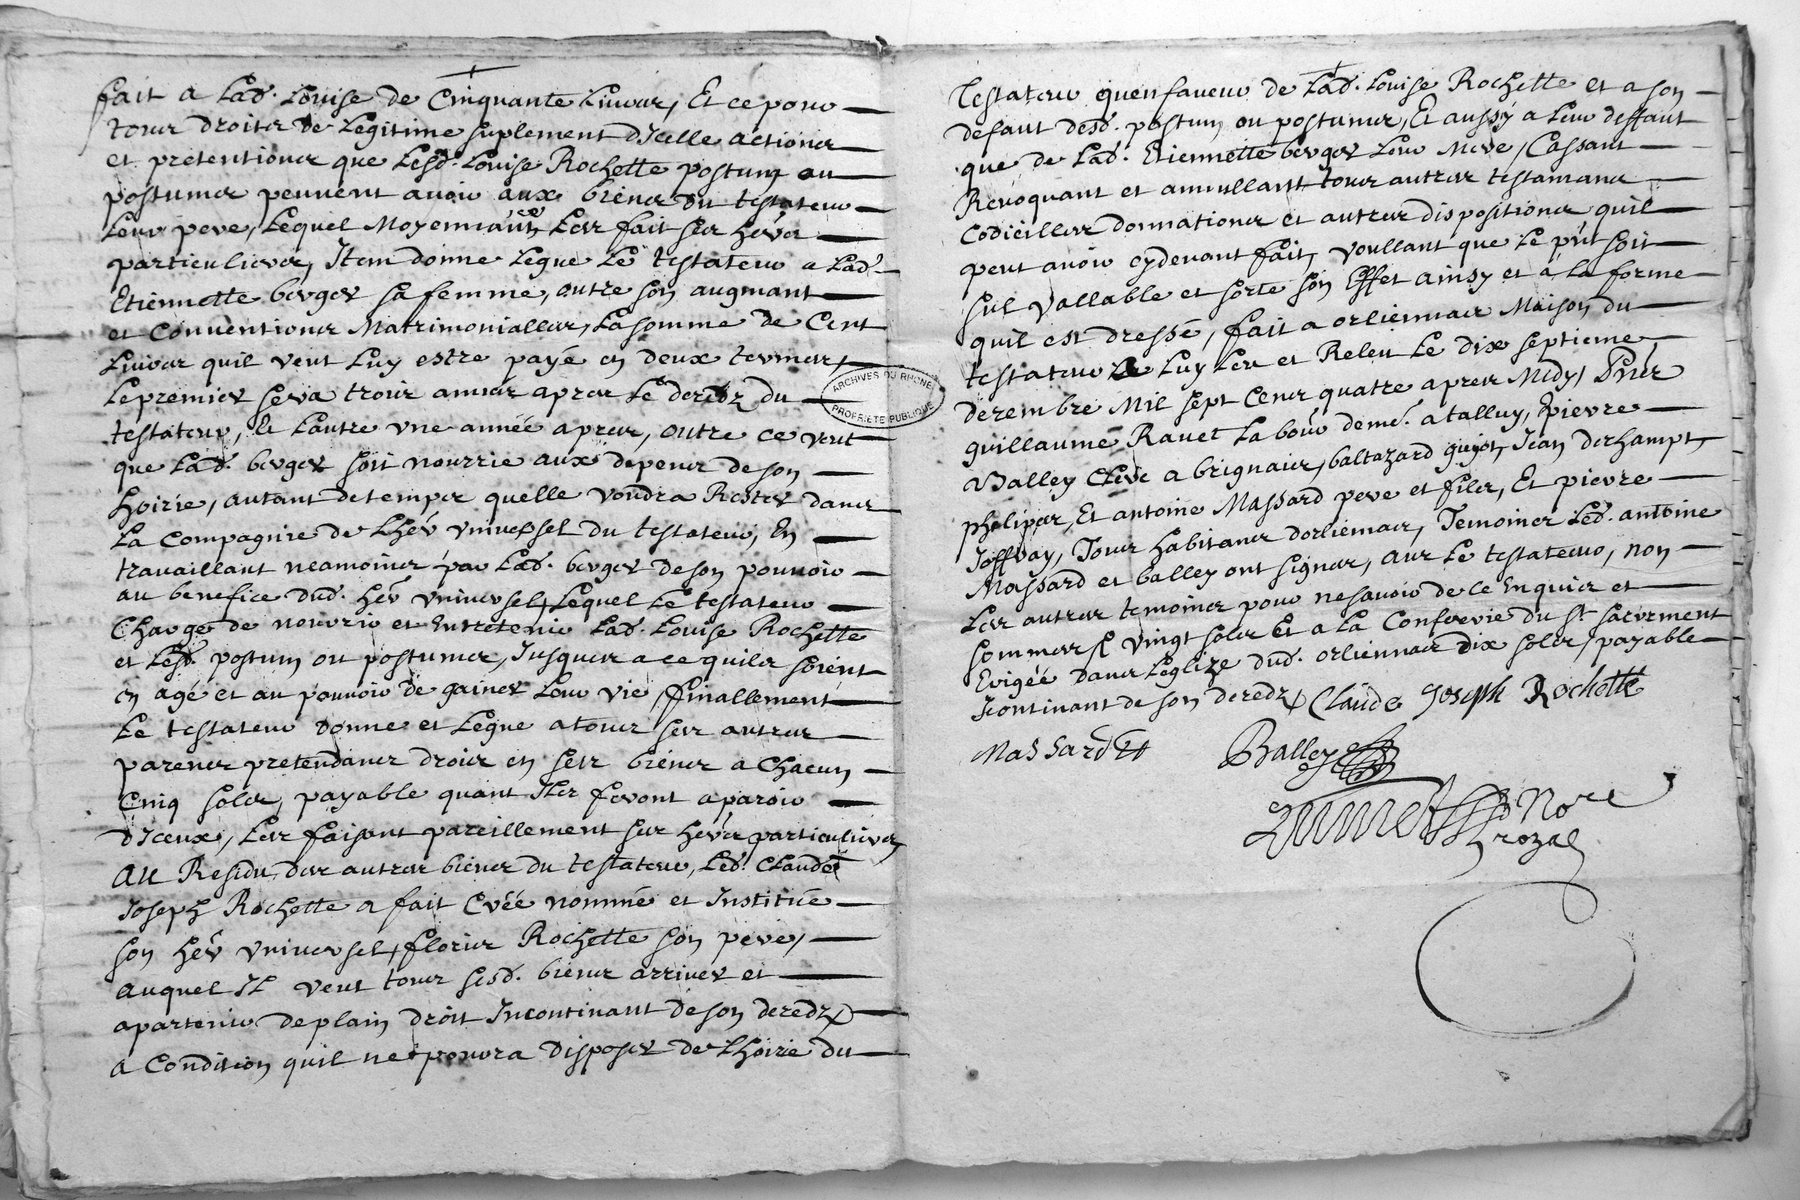 fait a Lad. Louise de Cinquante Livres, Et ce pour
tous droits de Legitime suplement d'Icelle actions
et pretentions que Lesd. Louise Rochette postum ou
postumes peuvent avoir aux biens du testateur
Leur pere, Lequel Moyennant Les fait ses hérs
particuliers, Item donne Legue Le testateur a Lad.
Etiennette berger sa femme, outre son augmant
et Conventions Matrimonialles, La somme de Cent
Livres quil veut Luy estre payé en deux termes,
Le premier sera trois années apres Le deredz du
testateur, Et Lautre une année apres, outre ce veut
que Lad. berger soit nourrie aux depens de son
hoirie, autant de temps quelle voudra Rester dans
La Compagnie de Lhér universel du testateur, En
travaillant neamoins par Lad. berger de son pouvoir
au benefice dud. hér universel, Lequel Le testateur
Charge de nourrir et Entretenir Lad. Louise Rochette
et Lesd. postum ou postumes, Jusques a ce quils soient
en agé et au pouvoir de gainer Leur vie, finallement
Le testateur donne et Legue a tous ses autres
parens pretendans droits en ses biens a Chacun
Cinq sols, payable quant Ils feront aparoir
d'Iceux, Les faisant pareillement ses hérs particuliers
Au Residu des autres biens du testateur, Led. Claude
Joseph Rochette a fait Créé nommé et Institué
son hér universel, floris Rochette son pere,
auquel Il veut tous sesd. biens arriver et
apartenir de plain droit Incontinant de son deredz
a Condition quil ne poura disposer de Lhoirie du
Testateur quen faveur de Lad. Louise Rochette et a son
defaut desd. postum ou postumes, Et aussy a Leur deffaut
que de Lad. Etiennette berger Leur Mere, Cassant
Revoquant et annullant tous autres testamans
Codicilles donnations et autres dispositions quil
peut avoir cydevant fait, voullant que Le pnt soit
sul vallable et sorte son Effet ainsy et a la forme
quil est dressé, fait a orliennas Maison du
testateur a Luy Leu et Releu Le dix septieme
derembre Mil sept Cens quatre apres Midy, Pnts
guillaume Ravet Labour deme. a talluy, Epierre
Balley Clerc a brignais, baltazard guyot, Jean deschampt,
phelipes, Et antoine Massard pere et fils, Et pierre
Joffray, Tous habitans dorliennas, Temoins Led. antoine
Massard et balley ont signes, avec Le testateur, non
Les autres temoins pour ne savoir de ce Enquis et
sommes vingt sols Et a La Confrerie du St sacrement
Erigée dans Leglize dud. orliennas dix sols, payable
Incontinant de son deredz Claude Joseph Rochette
Massard
Balley
Nore
royal
ARCHIVES DU RHONE
PROPRIETE PUBLIQUE